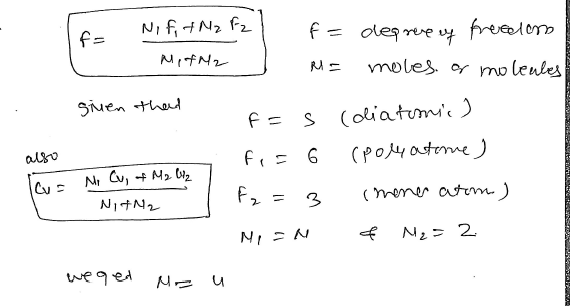 f = N₁f₁ + N₂f₂ / N₁+N₂
f = degree of freedom
N = moles or molecules
given that
f = 5 (diatomic)
also
f₁ = 6 (poly atomic)
Cv = N₁ Cv₁ + N₂ Cv₂ / N₁+N₂
f₂ = 3 (mono atom)
N₁ = N & N₂ = 2
we get N = 4